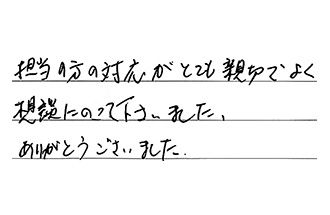 担当の方の対応がとても親切でよく
相談にのって下さいました、
ありがとうございました.